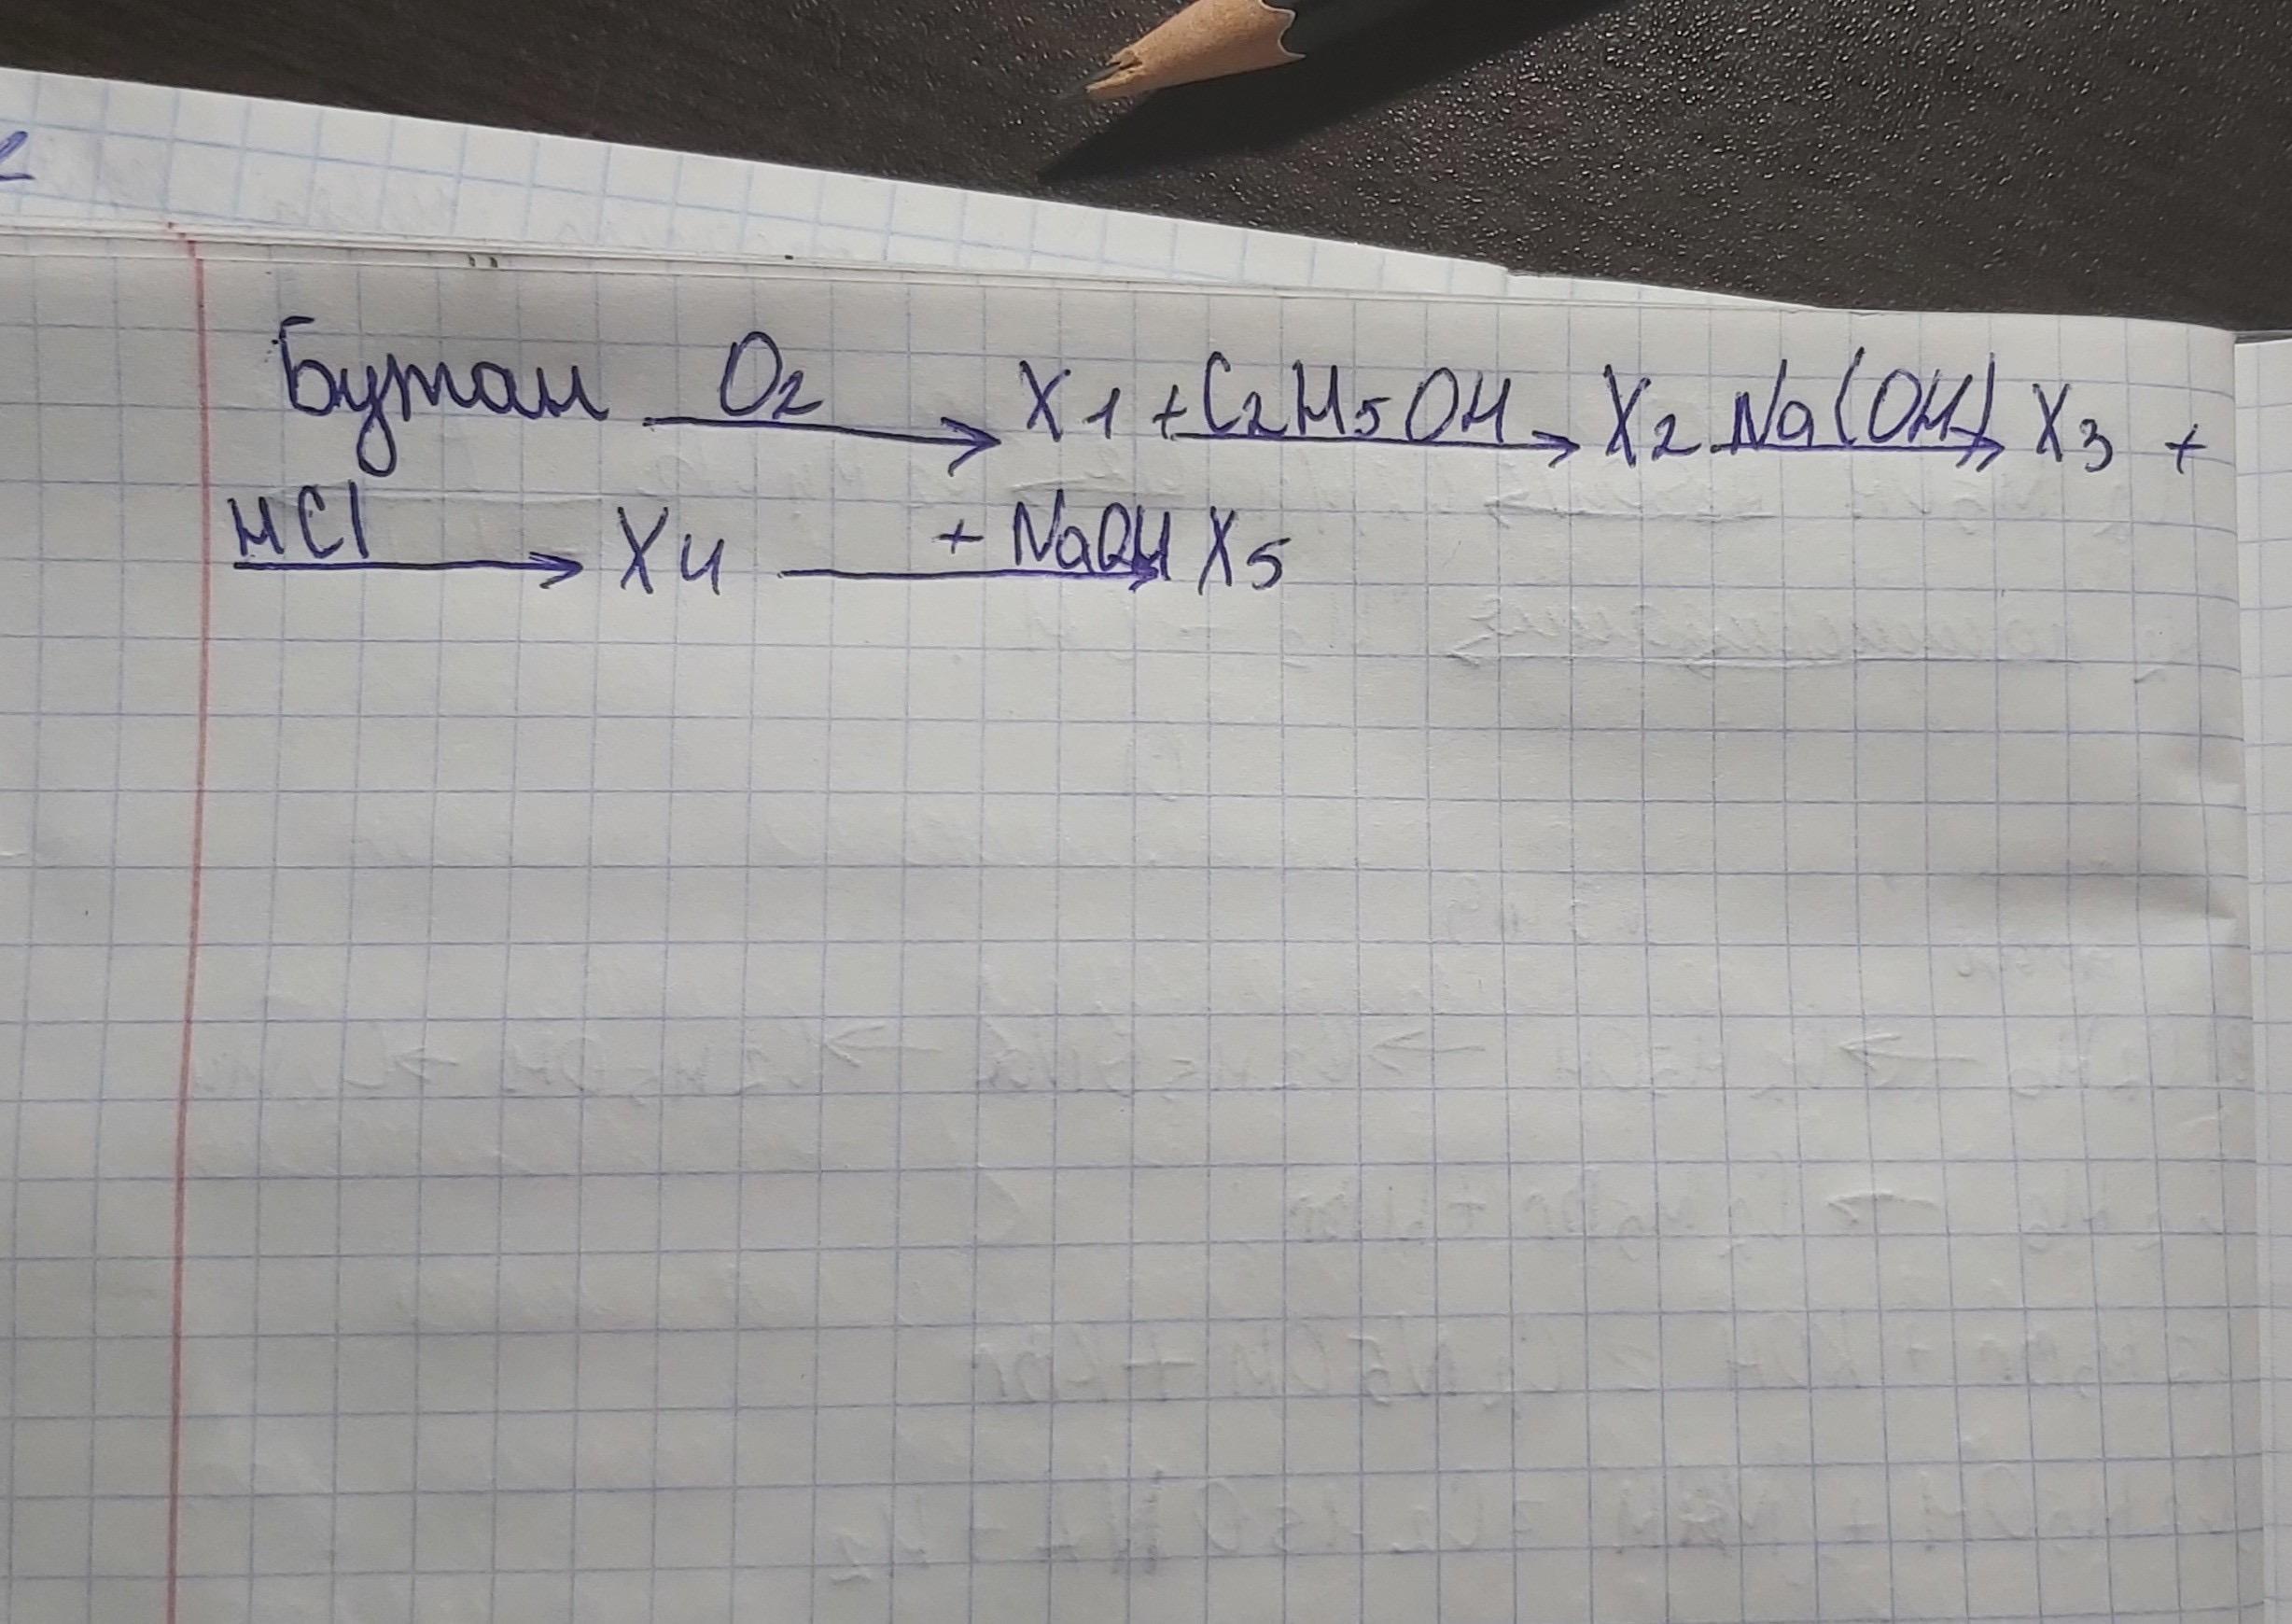 Бутан O2 → X1 + C2H5OH → X2 Na(OH) → X3 +
HCl → X4 + NaOH → X5